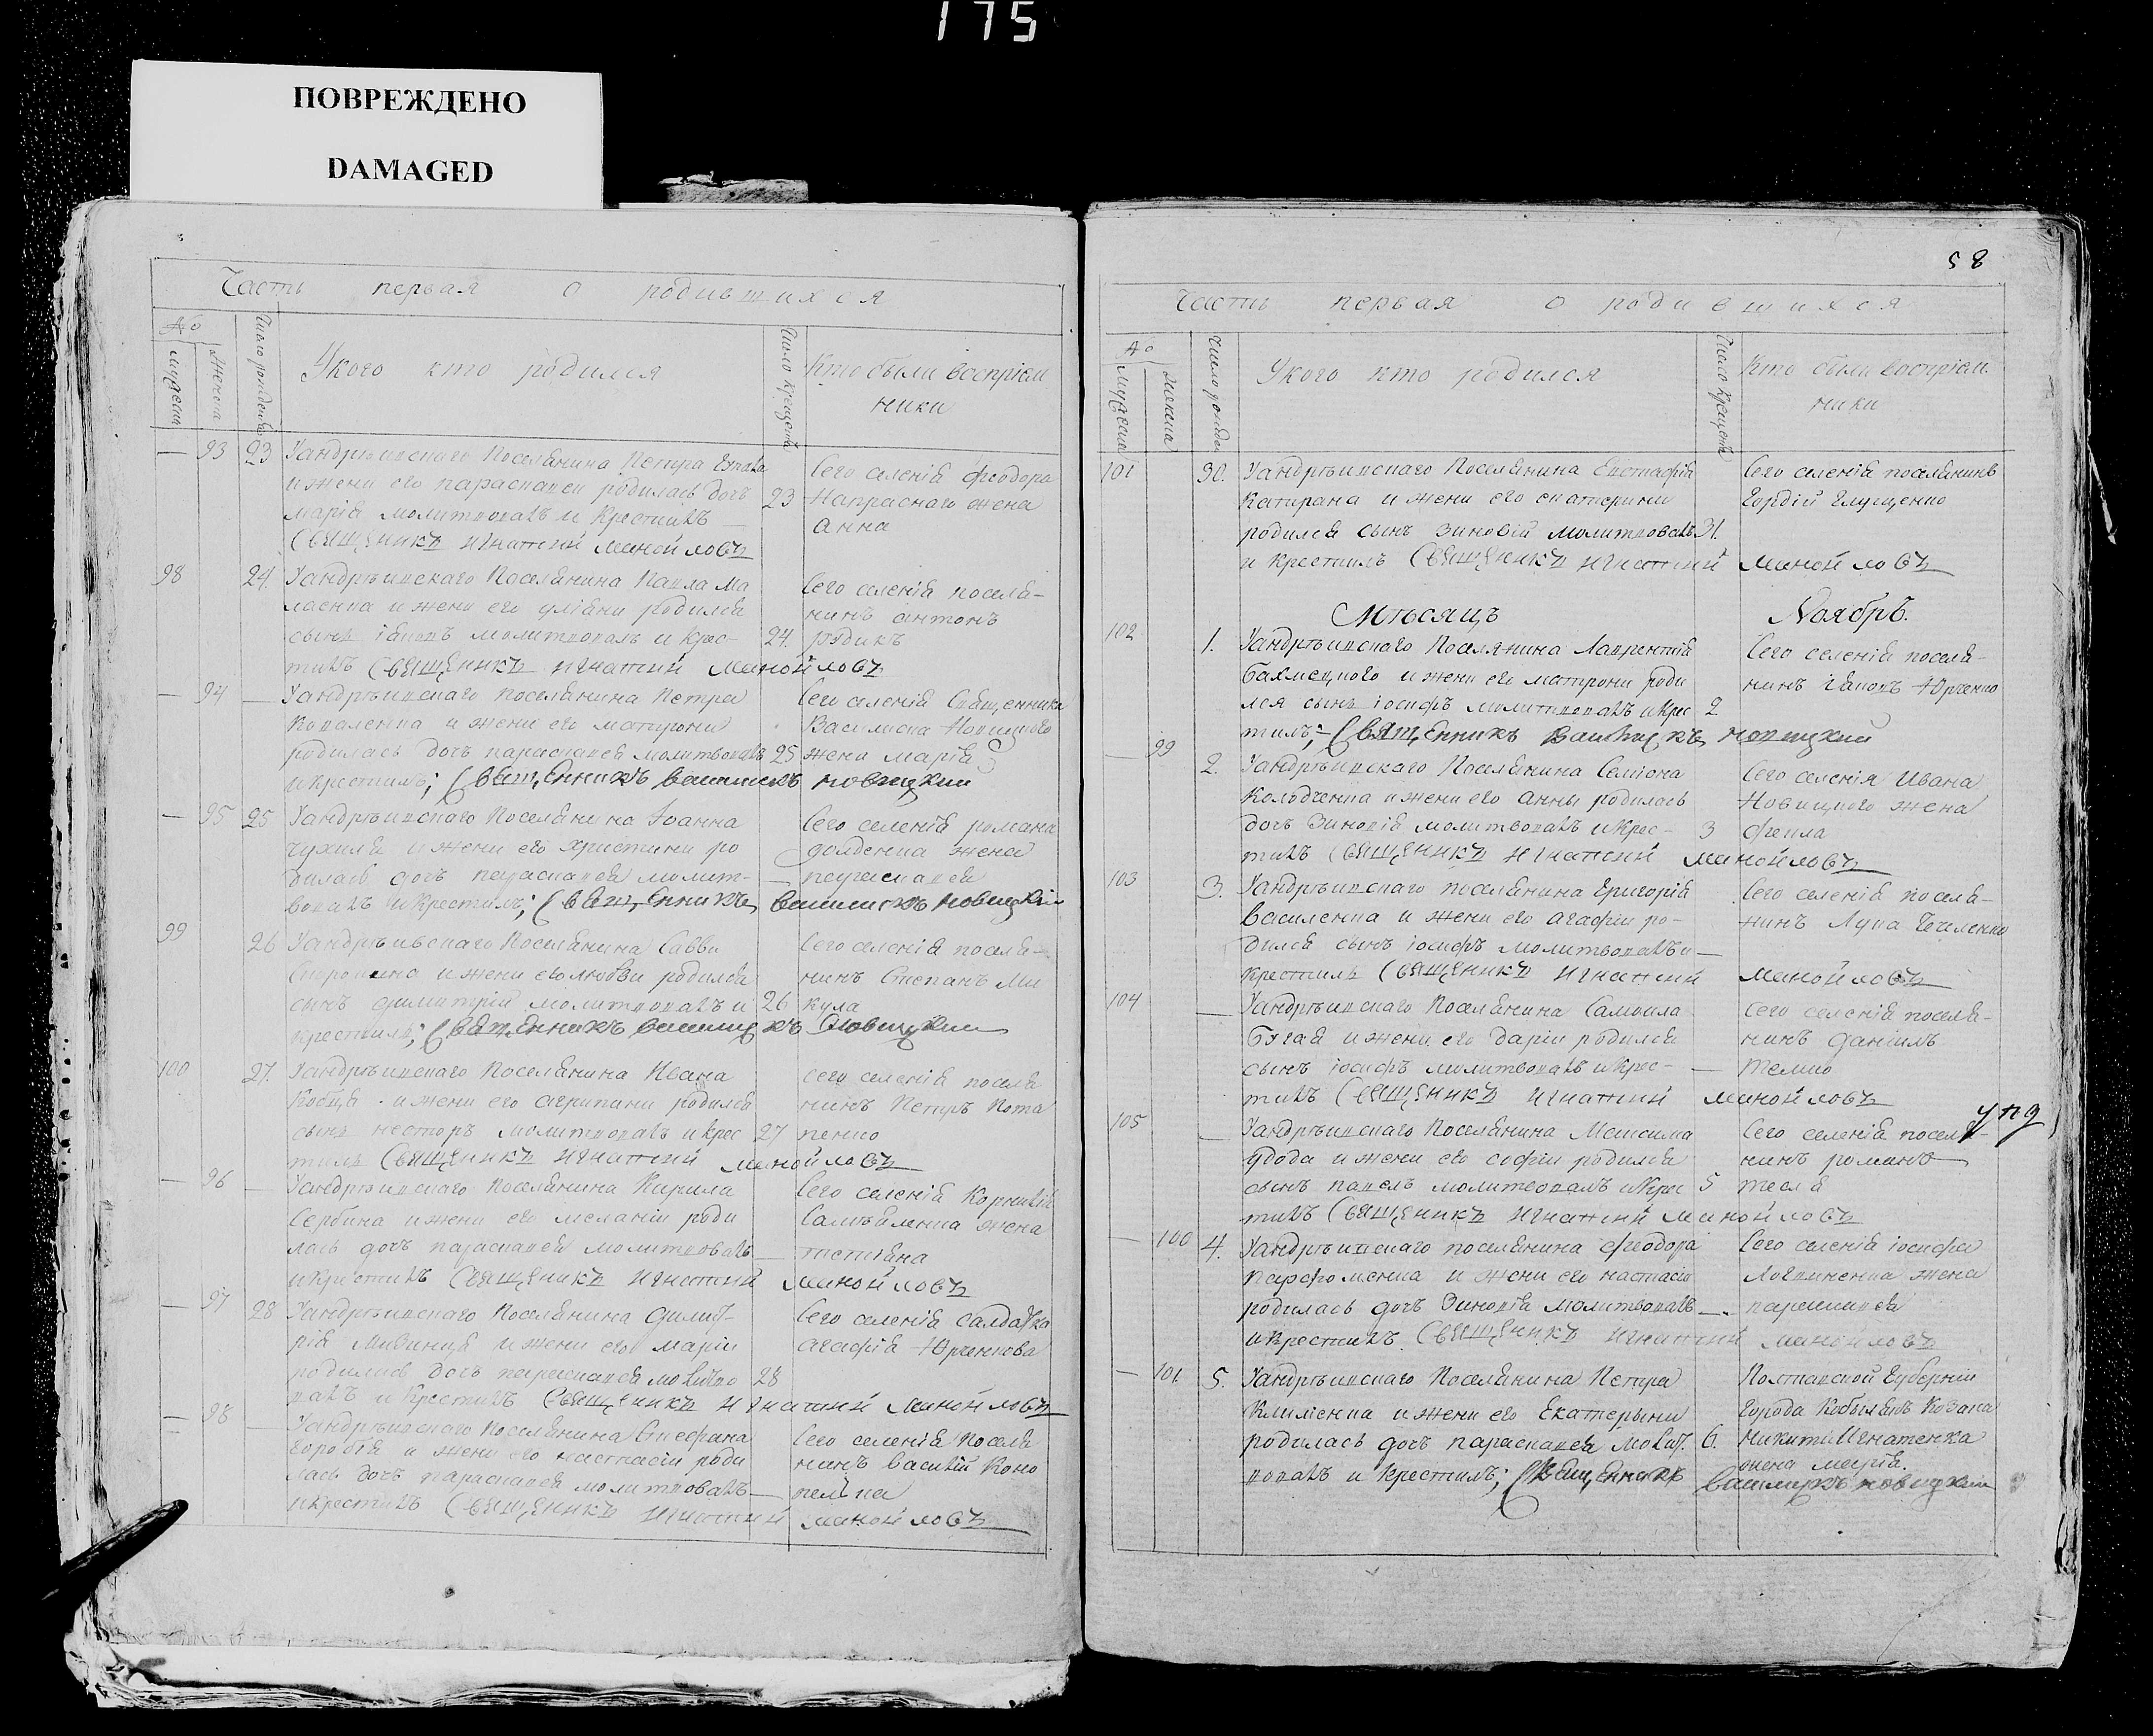 175
ПОВРЕЖДЕНО
DAMAGED
Часть первая о родившихся
№
мужеска
женска
Число рожденія
У кого кто родился
Число крещенія
Кто были воспріем
ники
93 23 Уандрѣивскаго Поселянина Петра
и жени его параскавеи родилась дочь
марія молитвовалъ и крестилъ
Священникъ игнатий манойловъ
23
Сего селенія феодора
Напраснаго жена
анна
98 24. Уандрѣивскаго Поселянина Павла Ма
и жени его уліяни родился
сынъ іаковъ молитвовалъ и крес-
тилъ Священникъ игнатий манойловъ
24.
Сего селенія поселя-
нинъ антонъ
рудикъ
94 Уандрѣивскаго поселянина Петра
Коваленка и жени его матрони
родилась дочь параскавея молитвовалъ
и крестилъ; Священникъ василискъ новицкий
25
Сего селенія Священника
Василиска Новицкого
жена марія
95 25 Уандрѣивскаго Поселянина Іоанна
и жени его христини ро
дилась дочь параскавея молит-
вовалъ и крестилъ; Священникъ василискъ новицкій
Сего селенія романа
жена
параскавея
99 26 Уандрѣивскаго Поселянина Савви
и жени его любви родился
сынъ димитрій молитвовалъ и
крестилъ; Священникъ василискъ Новицкий
26
Сего селенія поселя-
нинъ Степанъ Ми
кула
100 27. Уандрѣивскаго Поселянина Ивана
и жени его агрипани родился
сынъ несторъ молитвовалъ и крес
тилъ Священникъ игнатий манойловъ
27
Сего селенія поселя
нинъ Петръ Пота
пенко
96 Уандрѣивскаго Поселянина Кирила
Сербина и жени его меланіи роди
лась дочь параскавея молитвовалъ
и крестилъ Священникъ игнатий манойловъ
Сего селенія Корнилія
жена
97 28 Уандрѣивскаго Поселянина
и жени его маріи
родилась дочь параскавея молитво
валъ и крестилъ Священникъ игнатий манойловъ
28
Сего селенія салдатка
агафія Юрченкова
98 Уандрѣивскаго Поселянина Стефана
и жени его настасіи роди
лась дочь параскавея молитвовалъ
и крестилъ Священникъ игнатий манойловъ
Сего селенія Поселя
нинъ Василій Коно
пелька
58
Часть первая о родившихся
№
мужеска
женска
число рожден
У кого кто родился
Число крещеній
Кто были воспріем
ники
101 30. Уандрѣивскаго Поселянина Евстафія
Катрана и жени его екатерини
родился сынъ зиновій молитвовалъ
и крестилъ Священникъ игнатий манойловъ
31.
Сего селенія поселянинъ
Гордій Глущенко
Мѣсяцъ Ноябрь.
102 1. Уандрѣивскаго Поселянина Лаврентія
Бахмецкого и жени его матрони роди
лся сынъ іосифъ молитвовалъ и крес
тилъ; Священникъ василискъ новицкий
2
Сего селенія поселя-
нинъ іаковъ Юрченко
99 2. Уандрѣивскаго Поселянина Семіона
Колодченка и жени его анны родилась
дочь Зиновія молитвовалъ и крес-
тилъ Священникъ игнатий манойловъ
3
Сего селенія Ивана
Новицкого жена
фекла
103 3. Уандрѣивскаго поселянина Григорія
Василенка и жени его агафіи ро-
дился сынъ іосифъ молитвовалъ и
крестилъ Священникъ игнатий манойловъ
Сего селенія поселя-
нинъ Лука
104 Уандрѣивскаго Поселянина Самоила
Бугая и жени его даріи родился
сынъ іосифъ молитвовалъ и крес-
тилъ Священникъ игнатий манойловъ
Сего селенія поселя-
нинъ даніилъ
105 Уандрѣивскаго Поселянина Максима
Удода и жени его софіи родился
сынъ павелъ молитвовалъ и крес
тилъ Священникъ игнатий манойловъ
5
Сего селенія поселя-
нинъ романъ
тесля
100 4. Уандрѣивскаго поселянина феодора
Парфоменка и жени его настасіи
родилась дочь Зиновія молитвовалъ
и крестилъ Священникъ игнатий манойловъ
Сего селенія іосифа
Логвиненка жена
параскавея
101. 5. Уандрѣивскаго Поселянина Петра
Клименка и жени его Екатерыни
родилась дочь параскавея молит.
вовалъ и крестилъ; Священникъ василискъ новицкий
6.
Полтавской Губерніи
города Кобылякъ Козака
Никити Игнатенка
жена марія.